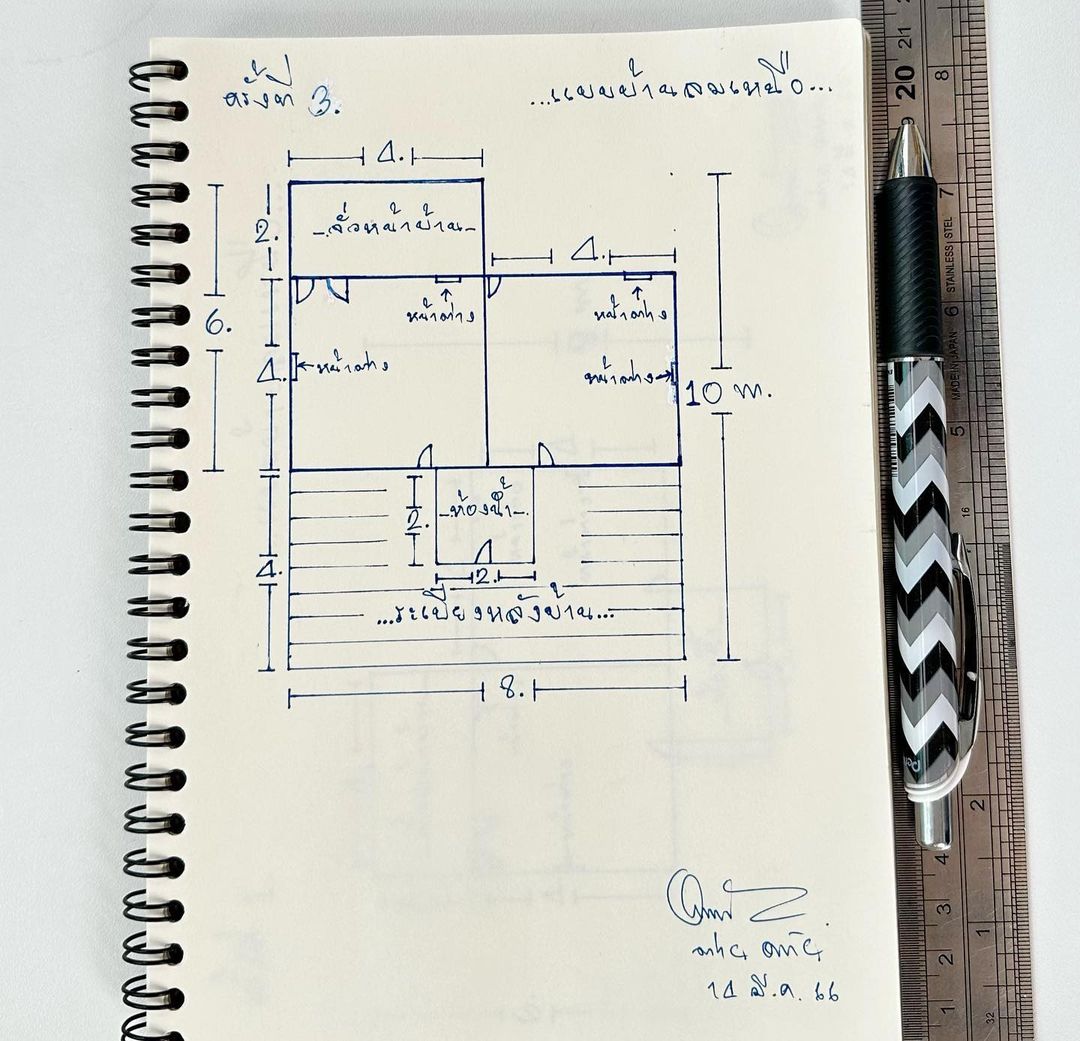 ครั้งที่ 3.
...แบบบ้านสมเหมือ...
4.
2.
-จั่วหน้าบ้าน-
4.
6.
หน้าต่าง
หน้าต่าง
4.
หน้าต่าง
หน้าต่าง
10 m.
2.
-ห้องน้ำ-
4.
2.
...ระเบียงหลังบ้าน...
8.
14 มี.ค. 66
20
21
8
7
6
5
2
1
4
3
2
1
16
32
STAINLESS STEEL
MADE IN JAPAN